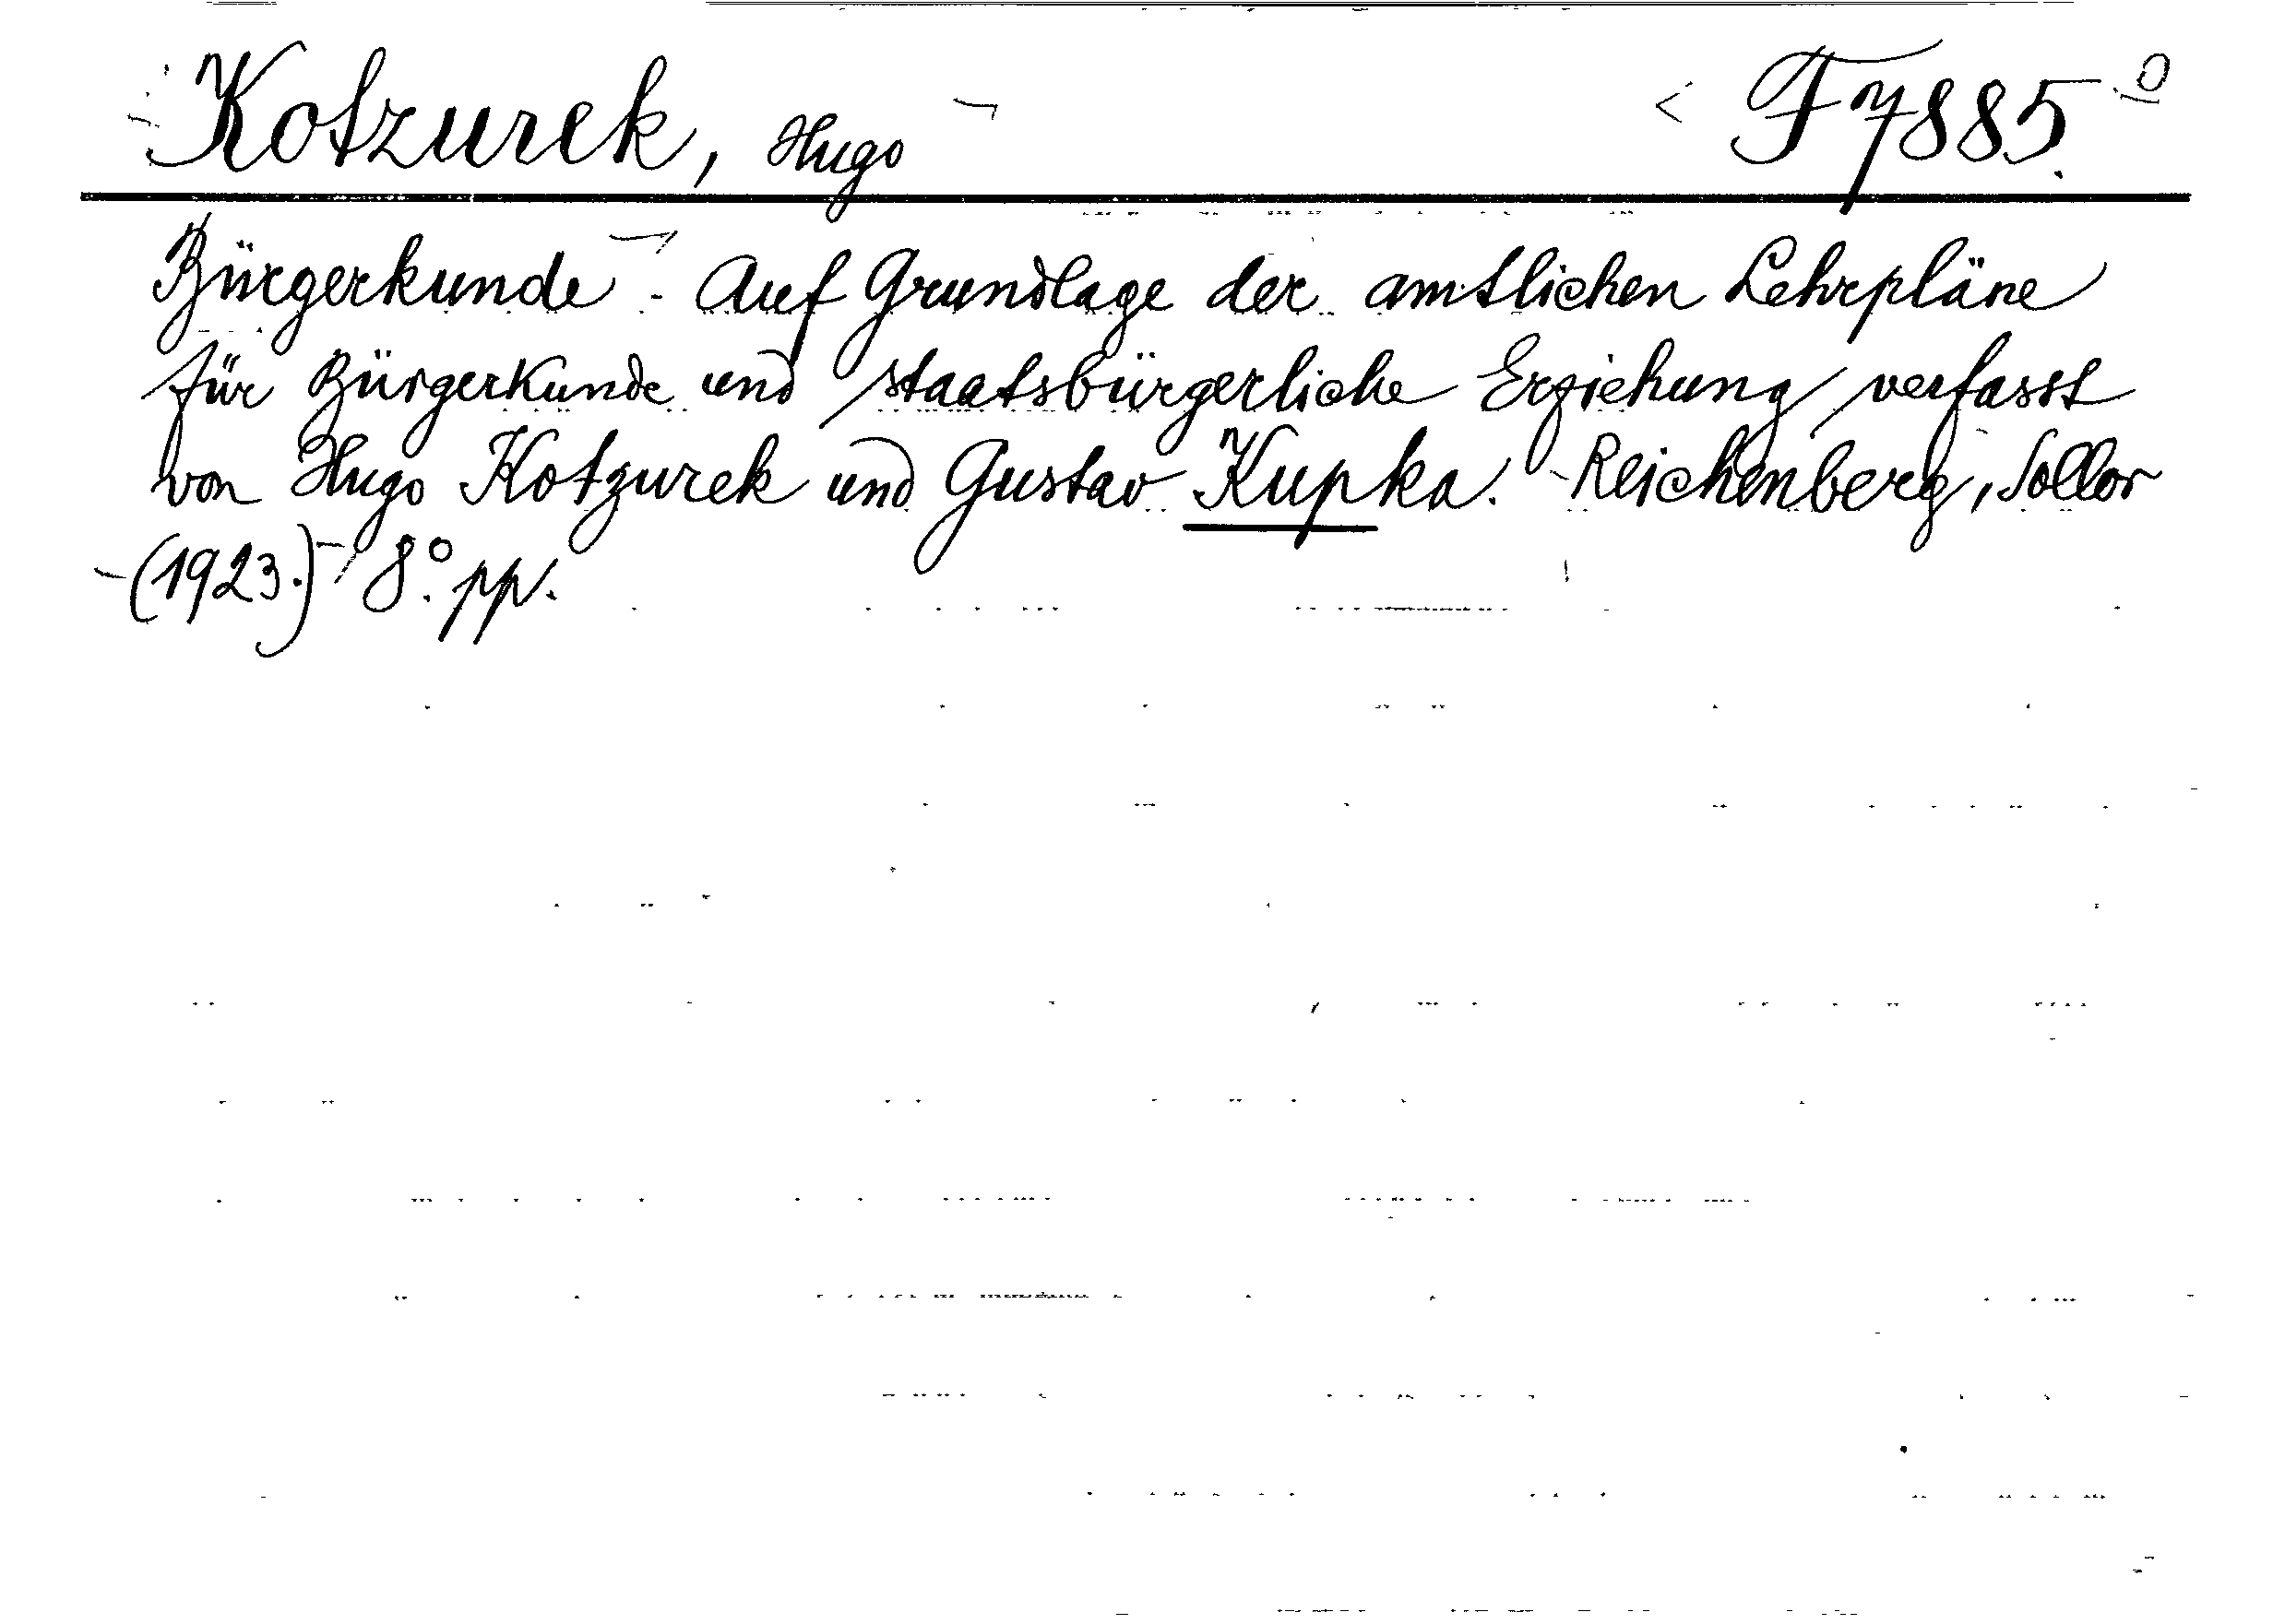 Kotzurek, Hugo F 7885.
Bürgerkunde - Auf Grundlage der amtlichen Lehrpläne
für Bürgerkunde und staatsbürgerliche Erziehung verfasst
von Hugo Kotzurek und Gustav Kupka. - Reichenberg, Sollor
(1923.) 8°. pp.